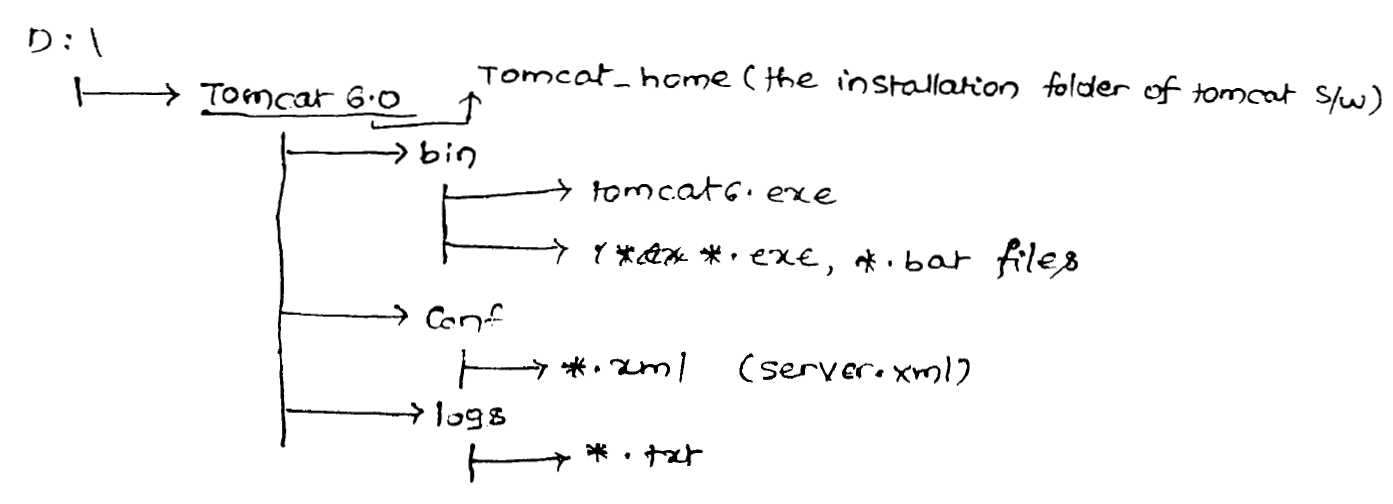 D:\
Tomcat 6.0 Tomcat_home (the installation folder of tomcat s/w)
bin
tomcat6.exe
*.exe, *.bat files
Conf
*.xml (server.xml)
logs
*.txt